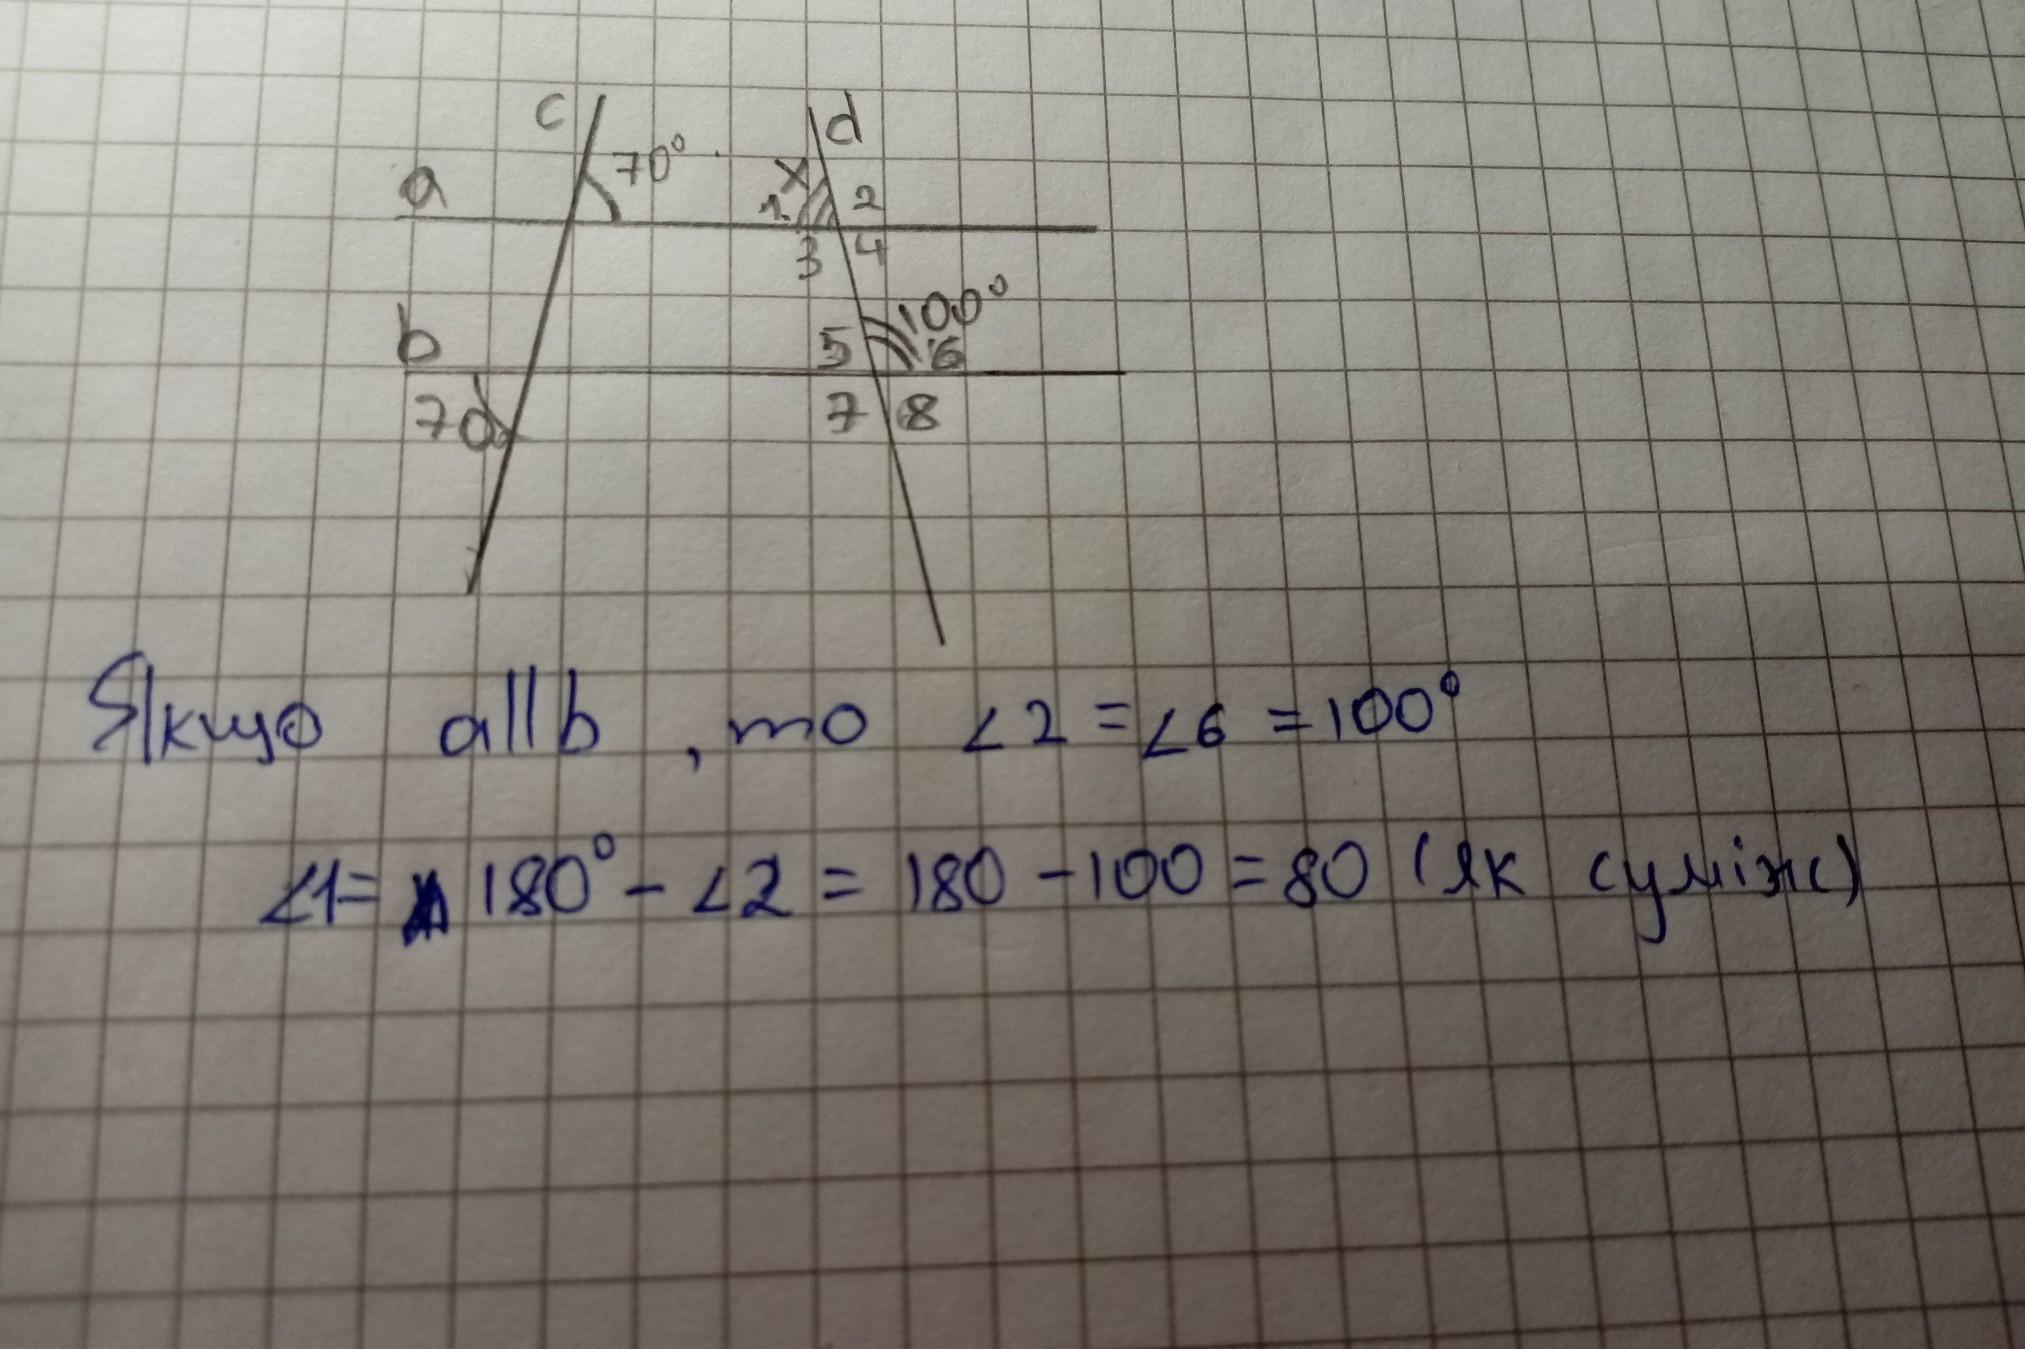 c d
a 70° x
1 2
3 4
b 100°
5 6
70 7 8
Якщо a||b, то ∠2 = ∠6 = 100°
∠1 = 180° - ∠2 = 180 - 100 = 80 (як суміж)